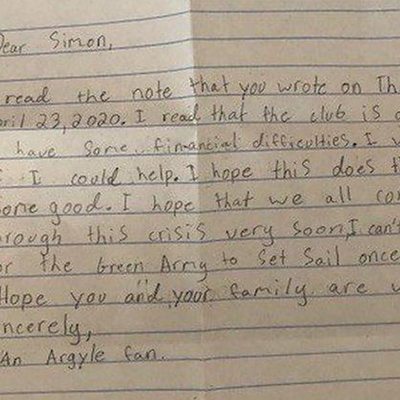 Dear Simon,
read the note that you wrote on Th
pril 23, 2020. I read that the club is
have some financial difficulties. I w
I could help. I hope this does t
ome good. I hope that we all co
rough this crisis very soon, I can't
or the Green Army to Set Sail once
Hope you and your family are w
ncerely,
An Argyle fan.